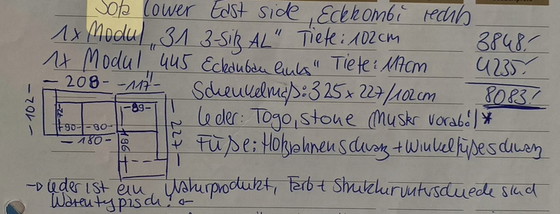 Sofa Lower East side, Eckkombi rechts
1x Modul „31 3-Sitz AL" Tiefe: 102cm 3848.-
1x Modul „445 Eckanbau links" Tiefe: 117cm 4235.-
- 208 - - 117 - Schenkelmaß: 325 x 227/102cm 8083.-
- 102 - - 89 - Leder: Togo, stone (Muster vorab!) *
- 90 - - 90 - 196 - 227 -
- 180 - Füße: schwarz + Winkelfüße schwarz
-> Leder ist ein Naturprodukt, Farb + Strukturunterschiede sind
Warentypisch! <-